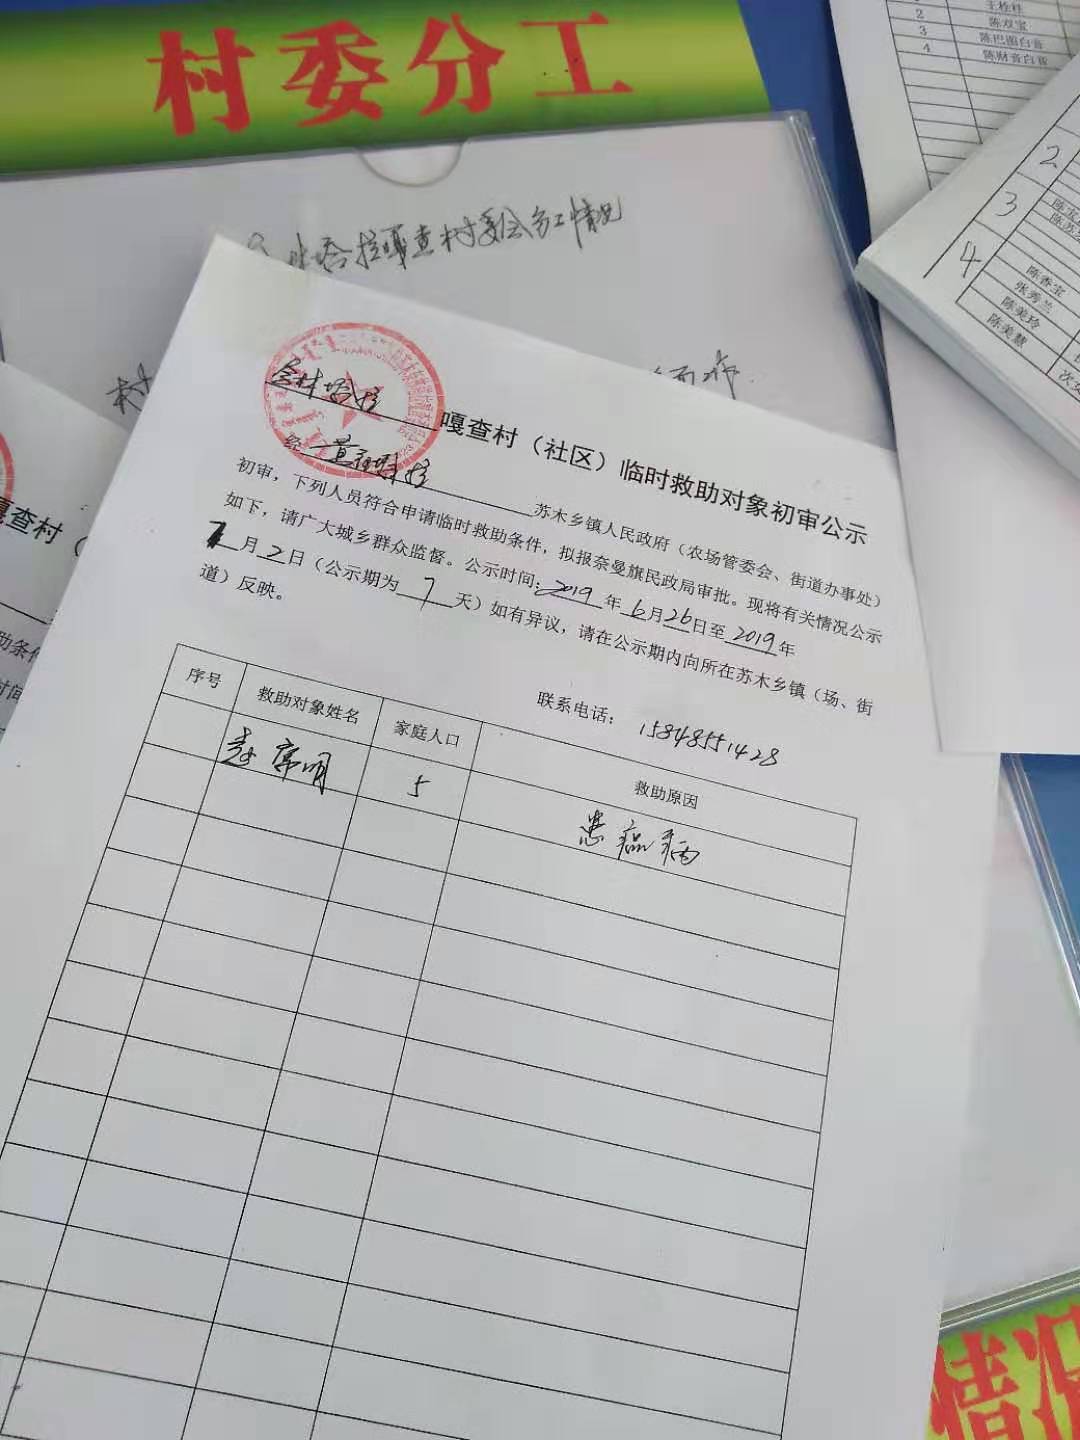 村委分工
塔拉嘎查村委会分工情况
村
嘎查村（社区）临时救助对象初审公示
经
苏木乡镇人民政府（农场管委会、街道办事处）
初审，下列人员符合申请临时救助条件，拟报奈曼旗民政局审批。现将有关情况公示
如下，请广大城乡群众监督。公示时间：2019年6月26日至2019年
7月2日（公示期为7天）如有异议，请在公示期内向所在苏木乡镇（场、街
道）反映。
联系电话：15848551428
序号 救助对象姓名 家庭人口 救助原因
5 患癌病
王栓柱
2 陈双宝
3 陈巴图白音
4 陈财音白音
2
3
4
陈香宝
张秀兰
陈美玲
陈美慧
嘎查村（
情况